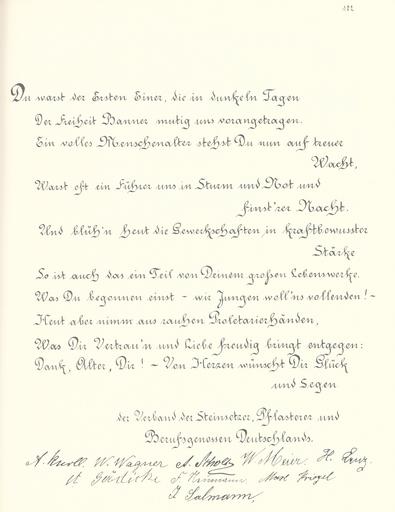 Du warst der Ersten Einer, die in dunkeln Tagen
Der Freiheit Banner mutig uns vorangetragen.
Ein volles Menschenalter stehst Du nun auf treuer
Wacht,
Warst oft ein Führer uns in Sturm und Not und
finst'rer Nacht.
Und blüh'n heut die Gewerkschaften, in kraftbewusster
Stärke
So ist auch das ein Teil von Deinem großen Lebenswerke.
Was Du begonnen einst - wir Jungen woll'ns vollenden! -
Heut aber nimm aus rauhen Proletarierhänden,
Was Dir Vertrau'n und Liebe freudig bringt entgegen:
Dank, Alter, Dir! - Von Herzen wünscht Dir Glück
und Segen
der Verband der Steinsetzer, Pflasterer und
Berufsgenossen Deutschlands.
A. Knoll. W. Wagner A. Scholz W Meier. H.
F.
J. Salmann,